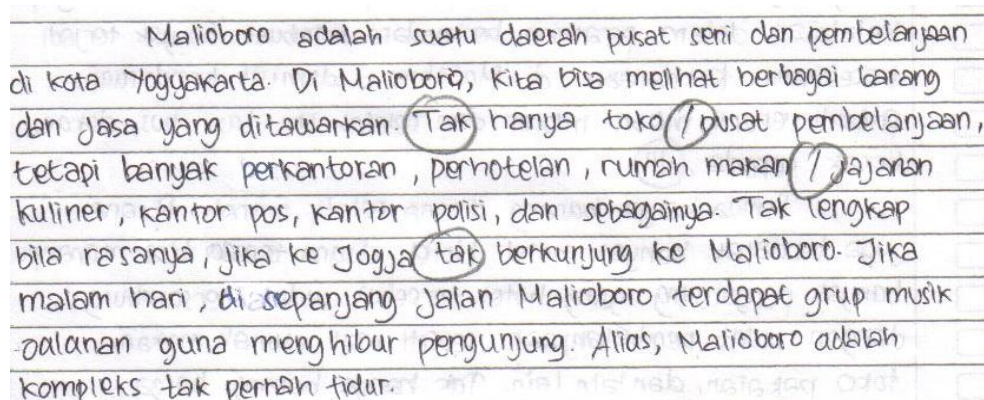 Malioboro adalah suatu daerah pusat seni dan pembelanjaan
di kota Yogyakarta. Di Malioboro, kita bisa melihat berbagai barang
dan jasa yang ditawarkan. Tak hanya toko / pusat pembelanjaan,
tetapi banyak perkantoran, perhotelan, rumah makan / jajanan
kuliner, kantor pos, kantor polisi, dan sebagainya. Tak lengkap
bila rasanya, jika ke Jogja tak berkunjung ke Malioboro. Jika
malam hari, di sepanjang jalan Malioboro terdapat grup musik
jalanan guna menghibur pengunjung. Alias, Malioboro adalah
kompleks tak pernah tidur.